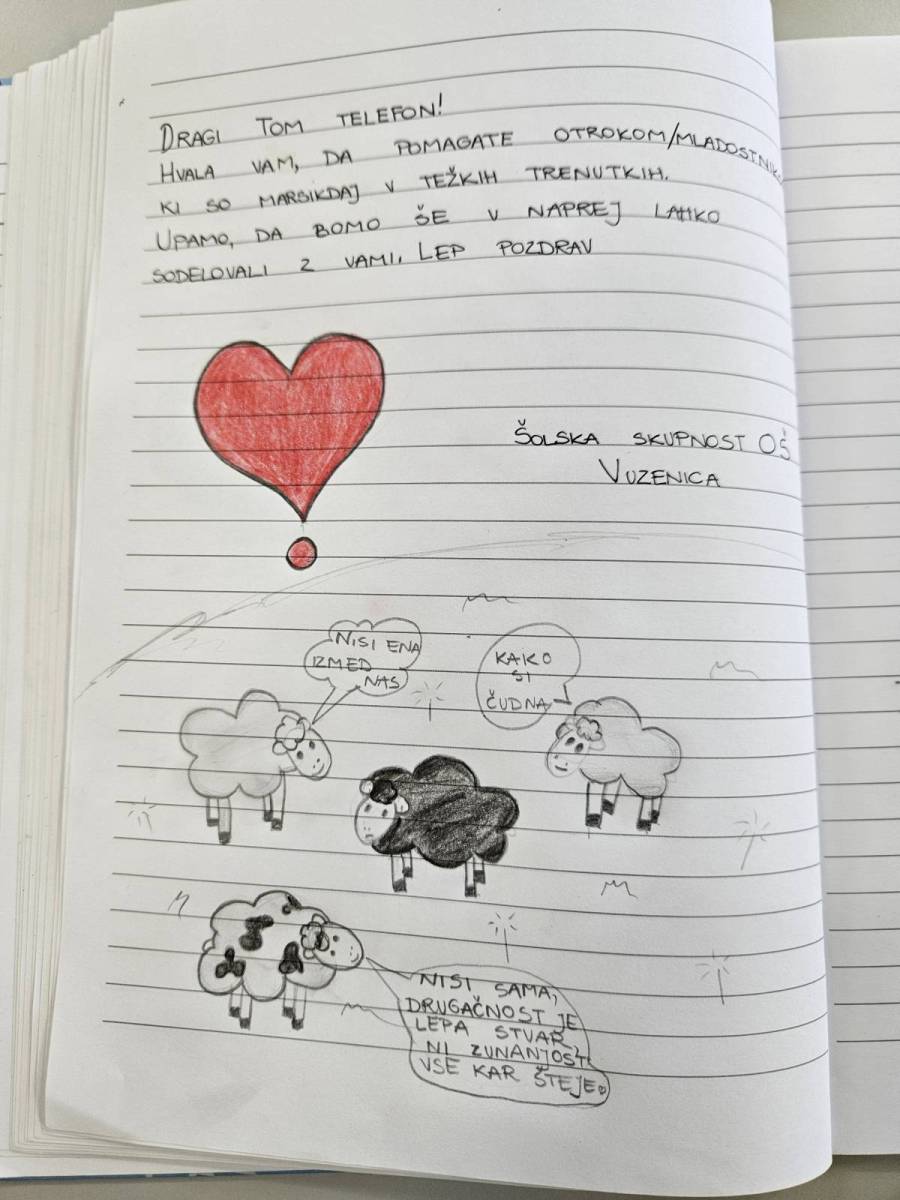 DRAGI TOM TELEFON!
HVALA VAM, DA POMAGATE OTROKOM/MLADOSTNIKOM
KI SO MARSIKDAJ V TEŽKIH TRENUTKIH.
UPAMO, DA BOMO ŠE V NAPREJ LAHKO
SODELOVALI Z VAMI. LEP POZDRAV
ŠOLSKA SKUPNOST OŠ
VUZENICA
NISI ENA
IZMED
NAS
KAKO
SI
ČUDNA
NISI SAMA,
DRUGAČNOST JE
LEPA STVAR,
NI ZUNANJOST
VSE KAR ŠTEJE.